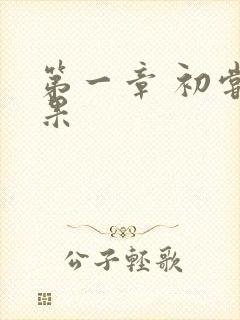 第一章 初尝
果
公子轻歌